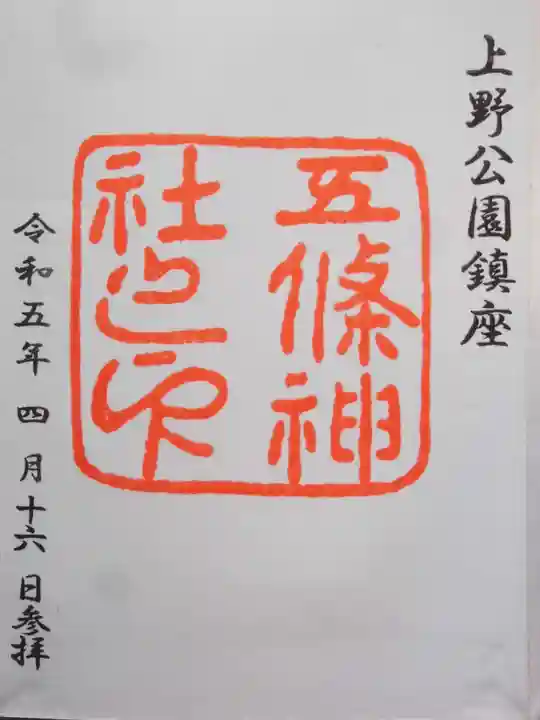 上野公園鎮座
五條神
社之印
令和五年四月十六日参拝